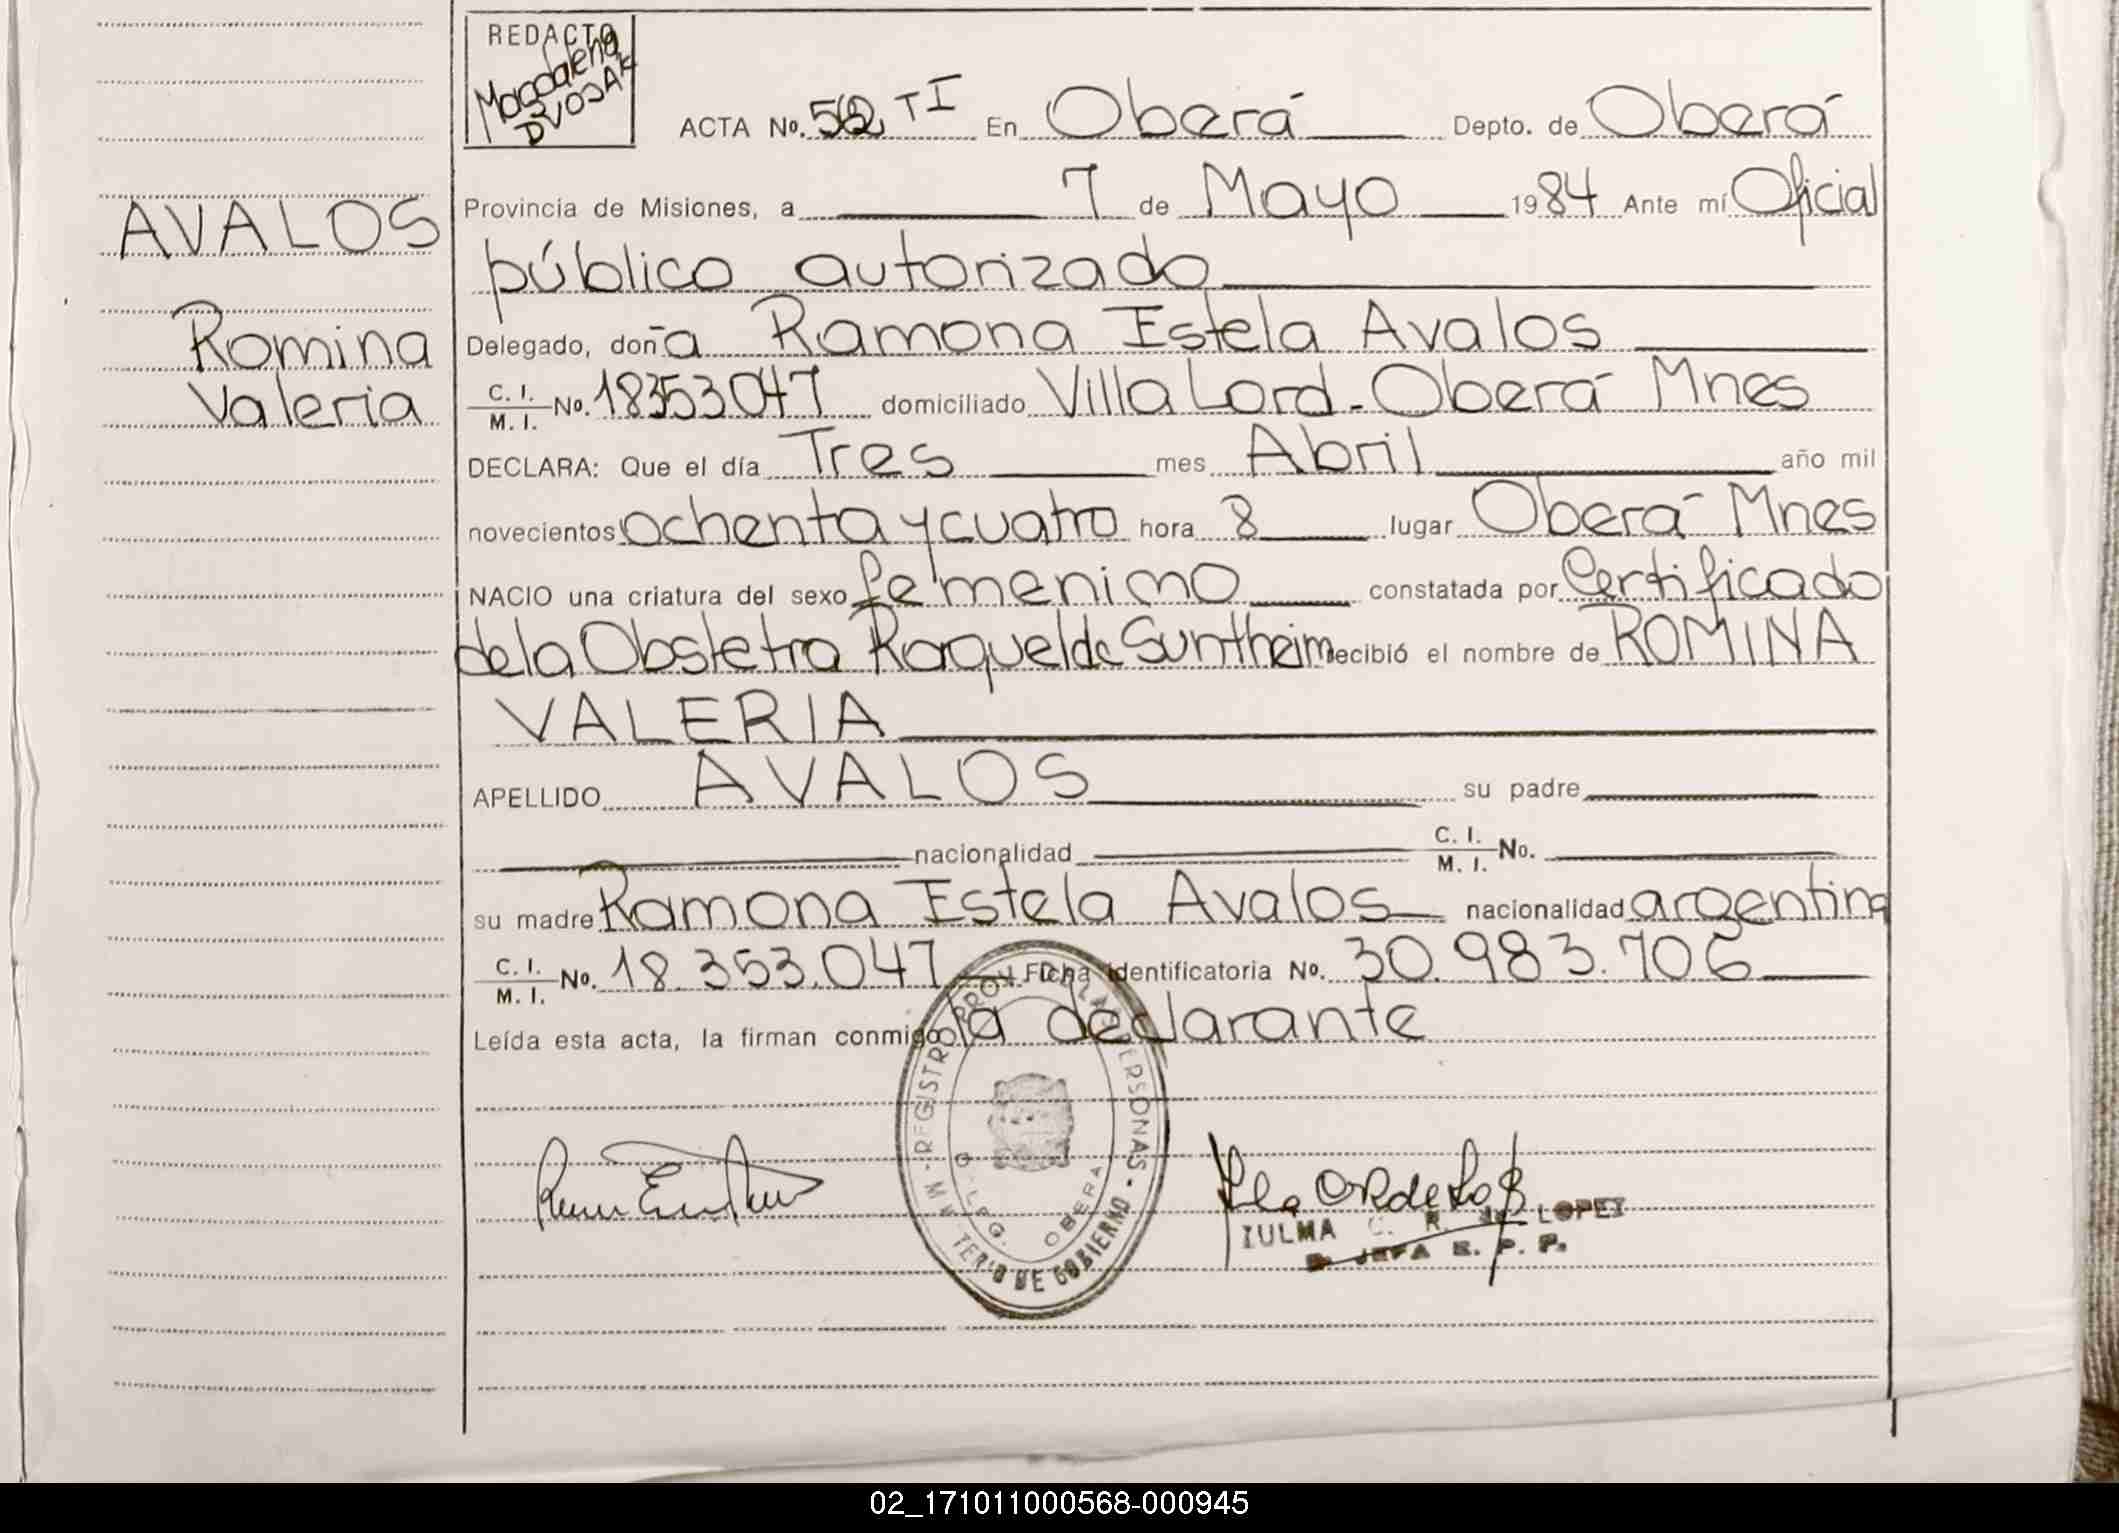 REDACTO
Magdalena
DVOJAK
ACTA No. 562 TI En Oberá Depto. de Oberá
Provincia de Misiones, a 7 de Mayo 1984 Ante mí Oficial
público autorizado
Delegado, doña Ramona Estela Avalos
C. I.
M. I. No. 18353047 domiciliado Villa Lord - Oberá Mnes
DECLARA: Que el día Tres mes Abril año mil
novecientos ochenta y cuatro hora 8 lugar Oberá Mnes
NACIO una criatura del sexo femenino constatada por Certificado
de la Obstetra Raquel de Suntheim recibió el nombre de ROMINA
VALERIA
APELLIDO AVALOS su padre
nacionalidad C. I.
M. I. No.
su madre Ramona Estela Avalos nacionalidad argentina
C. I.
M. I. No. 18.353.047 y Ficha identificatoria No. 30.983.706
Leída esta acta, la firman conmigo la declarante
AVALOS
Romina
Valeria
REGISTRO PROV. DE LAS PERSONAS
DELEG. OBERA
MINISTERIO DE GOBIERNO
ZULMA C. R. de LOPEZ
JEFA R. P. P.
02_171011000568-000945